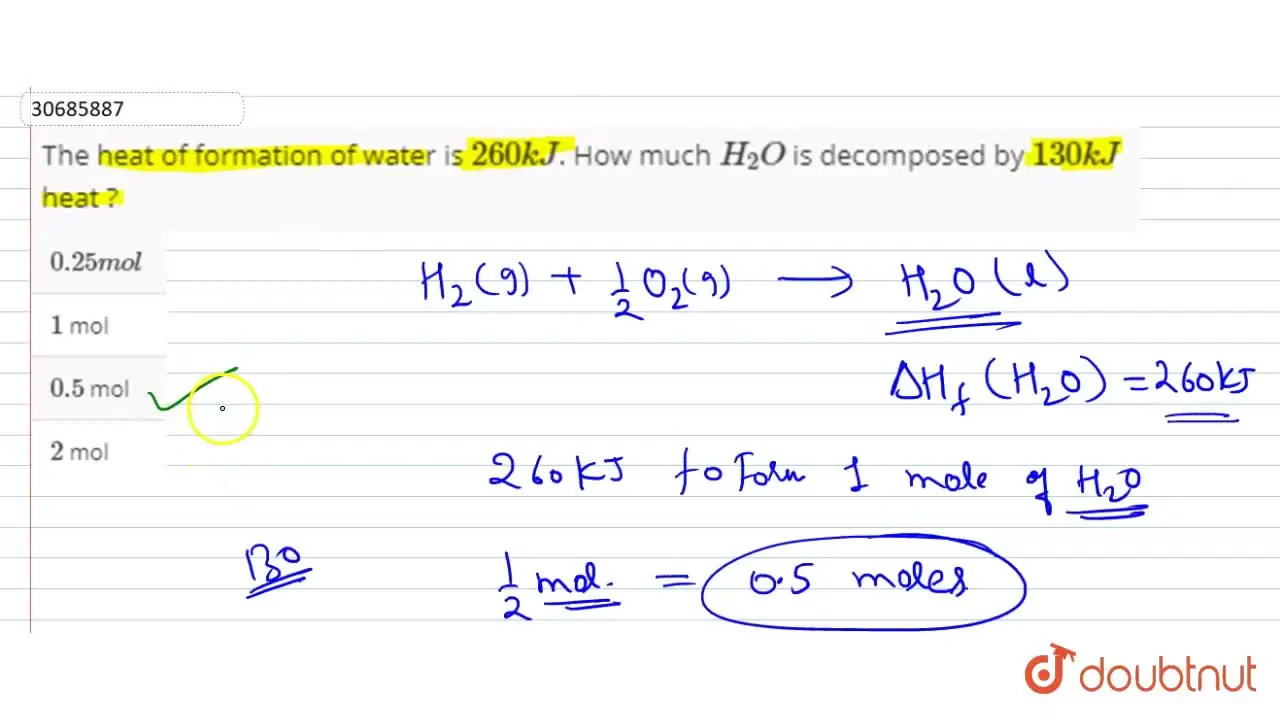 30685887
The heat of formation of water is 260kJ. How much H₂O is decomposed by 130kJ
heat ?
0.25mol
1 mol
0.5 mol
2 mol
H₂(g) + 1/2 O₂(g) → H₂O(l)
ΔH_f (H₂O) = 260kJ
260KJ to Form 1 mole of H₂O
130
1/2 mol. = 0.5 moles
doubtnut